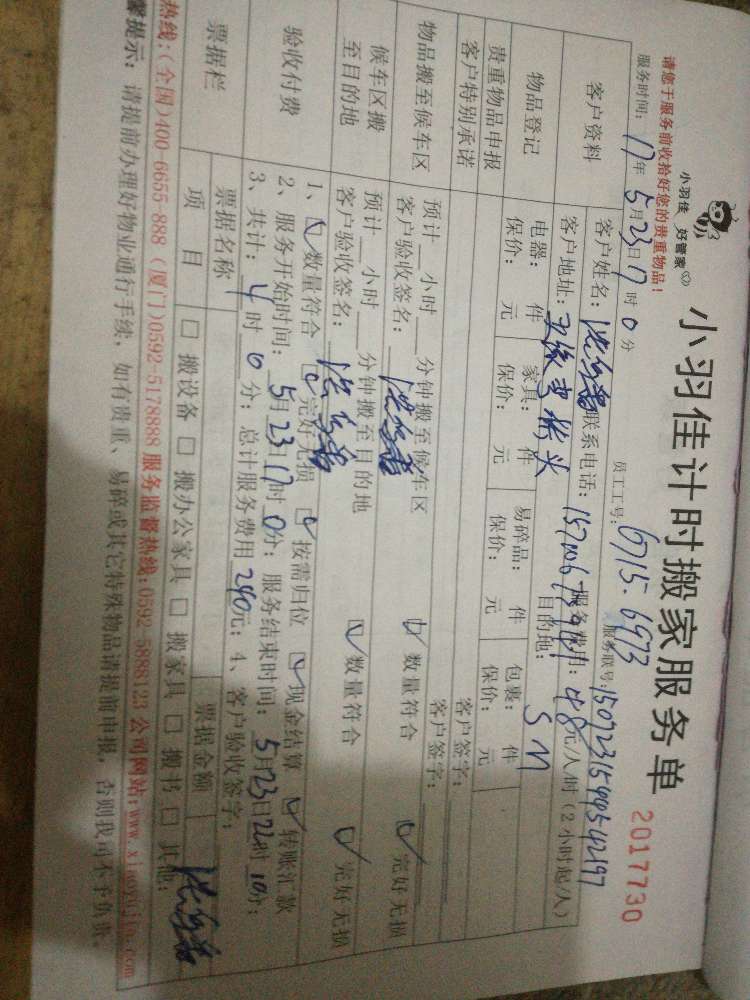 小羽佳 好管家
小羽佳计时搬家服务单
2017730
请您于服务前收拾好您的贵重物品!
员工工号: 6715. 6973
服务联号:
服务时间: 17年 5月 23日 17时 0分
客户资料
客户姓名: 联系电话: 服务费用: 48元/人/时(2小时起/人)
客户地址: 目的地: SM
物品登记
电器: 件 家具: 件 易碎品: 件 包裹: 件
保价: 元 保价: 元 保价: 元 保价: 元
贵重物品申报 客户签字:
客户特别承诺 客户签字:
物品搬至候车区
预计 小时 分钟搬至候车区
客户验收签名: 数量符合 完好无损
候车区搬至目的地
预计 小时 分钟搬至目的地
客户验收签名: 数量符合 完好无损
验收付费
1、数量符合 完好无损 按需归位 现金结算 转账汇款
2、服务开始时间: 5月23日17时0分; 服务结束时间: 5月23日22时10分;
3、共计: 4时0分; 总计服务费用240元; 4、客户验收签字:
票据栏
票据名称 票据金额
项目 搬设备 搬办公家具 搬家具 搬书 其他:
热线:(全国)400-6655-888 (厦门)0592-5178888 服务监督热线:0592-5888123 公司网站:www.xiaoyujia.com
馨提示: 请提前办理好物业通行手续, 如有贵重、易碎或其它特殊物品请提前申报, 否则我司不予负责。